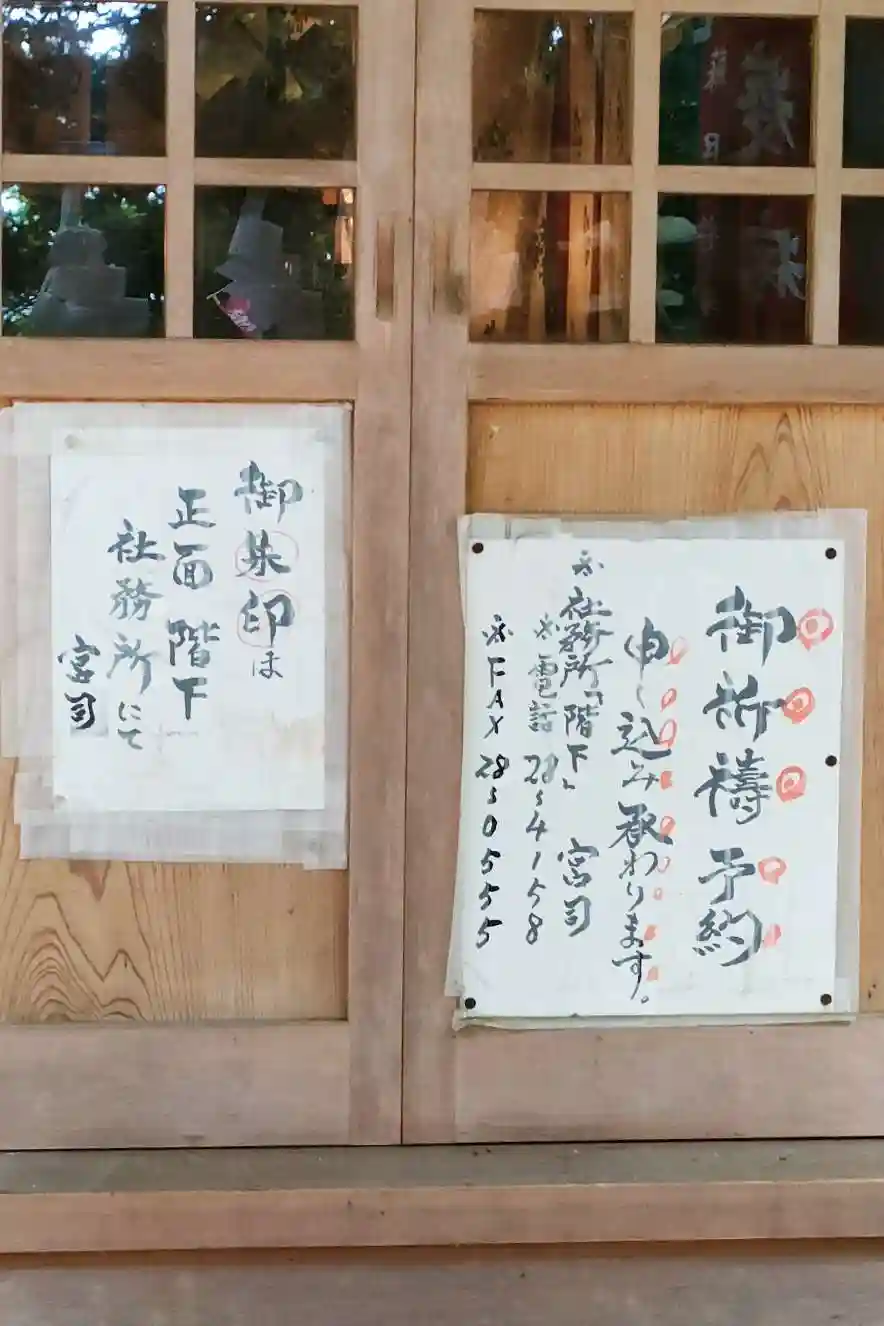 御朱印は
正面階下
社務所にて
宮司
御祈禱予約
申し込み承わります。
※社務所「階下」 宮司
※電話 28s4158
※FAX 28s0555
蘇民